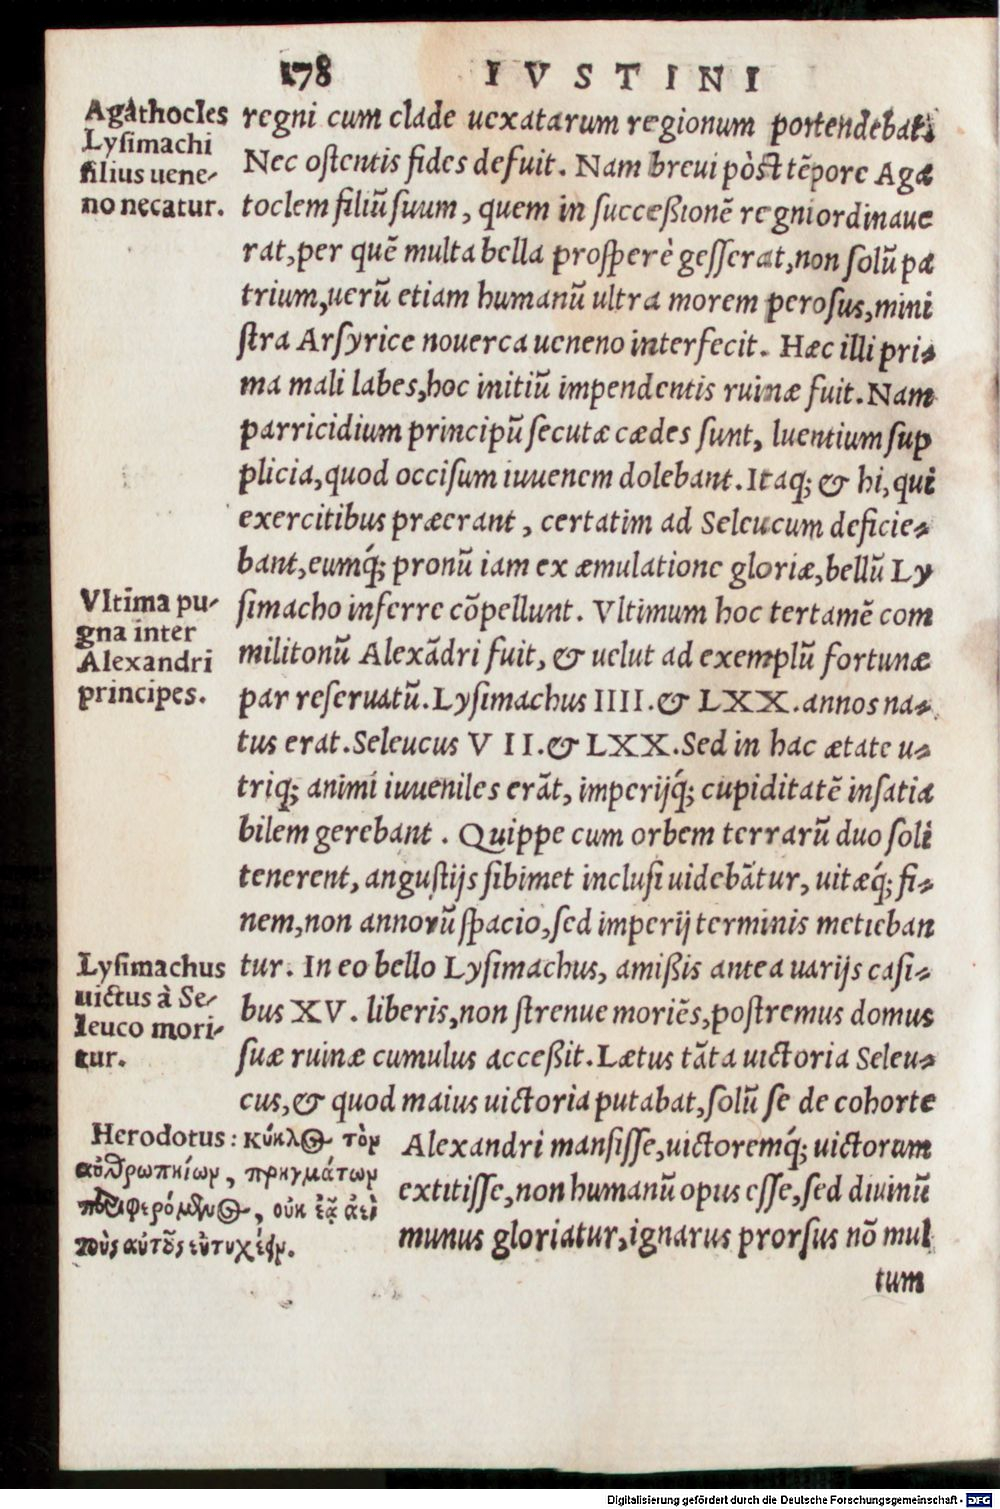 178 IVSTINI
Agathocles
Lysimachi
filius uene-
no necatur.
regni cum clade uexatarum regionum portendebat.
Nec oſtentis fides defuit. Nam breui pòſt tēpore Aga
toclem filiū ſuum, quem in ſucceßionē regni ordinaue
rat, per quē multa bella proſperè geſſerat, non ſolū pa
trium, uerū etiam humanū ultra morem peroſus, mini
ſtra Arſyrice nouerca ueneno interfecit. Hæc illi pri-
ma mali labes, hoc initiū impendentis ruinæ fuit. Nam
parricidium principū ſecutæ cædes ſunt, luentium ſup
plicia, quod occiſum iuuenem dolebant. Itaq; & hi, qui
exercitibus præerant, certatim ad Seleucum deficie-
bant, eumq́; pronū iam ex æmulatione gloriæ, bellū Ly
Vltima pu-
gna inter
Alexandri
principes.
ſimacho inferre cōpellunt. Vltimum hoc tertamē com
militonū Alexādri fuit, & uelut ad exemplū fortunæ
par reſeruatū. Lyſimachus IIII. & LXX. annos na-
tus erat. Seleucus VII. & LXX. Sed in hac ætate u-
triq; animi iuueniles erāt, imperijq́; cupiditatē inſatia
bilem gerebant. Quippe cum orbem terrarū duo ſoli
tenerent, anguſtijs ſibimet incluſi uidebātur, uitæq́; fi-
nem, non annorū ſpacio, ſed imperij terminis metieban
Lyſimachus
uictus à Se-
leuco mori-
tur.
tur. In eo bello Lyſimachus, amißis antea uarijs caſi-
bus XV. liberis, non ſtrenue moriēs, poſtremus domus
ſuæ ruinæ cumulus acceßit. Lætus tāta uictoria Seleu-
cus, & quod maius uictoria putabat, ſolū ſe de cohorte
Alexandri manſiſſe, uictoremq́; uictorum
extitiſſe, non humanū opus eſſe, ſed diuinū
munus gloriatur, ignarus prorſus nō mul
tum
Herodotus: κύκλος τὸν
ἀνθρωπηίων, πρηγμάτων
περιφερόμενος, οὐκ ἐᾷ ἀεὶ
τοὺς αὐτοὺς εὐτυχέειν.
Digitalisierung gefördert durch die Deutsche Forschungsgemeinschaft - DFG